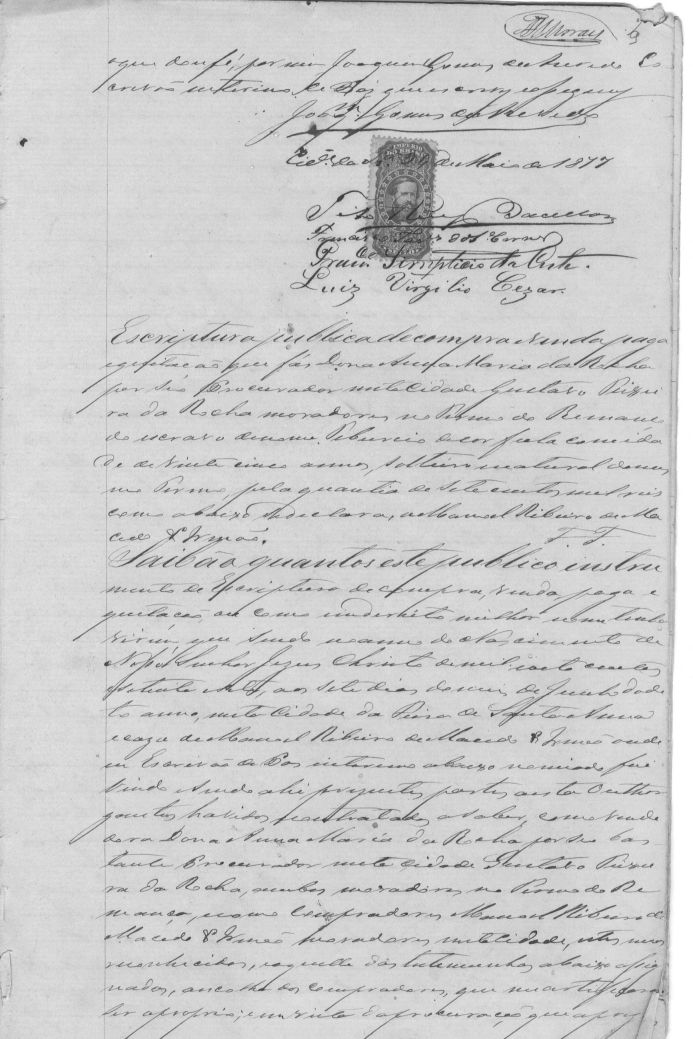 oque dou fé, por mim Joaquim Gomes de Azevedo Es-
crivão interino de Paz que escrevy e assigney
Joaqm. Gomes de Azevedo
Cide. da 29 de Maio de 1877
IMPERIO DO BRASIL
Tito Ruy Bacellar
Luiz Virgilio Cezar.
Escriptura publica de compra, venda, paga
e quitação que fás Dona Anna Maria da Rocha
por seo Procurador nesta Cidade Gustavo
ra da Rocha moradores no Termo do Remanço
do escravo de nome Tiburcio de cor fula com ida
de de vinte cinco annos, solteiro natural do mes
mo Termo, pela quantia de sete centos mil reis
como abaixo se declara, a Manoel Ribeiro de Ma
cedo & Irmão.
Saibão quantos este publico instru
mento de Escriptura de compra, venda paga e
quitação ou como em direito melhor nome tenha
virem, que sendo no anno do Nascimento de
Nosso Senhor Jezus Christo de mil oito centos
e setenta e sete, aos sete dias do mez de Junho do di
to anno, nesta Cidade da Feira de Santa Anna
e caza de Manoel Ribeiro de Macedo & Irmão onde
eu Escrivão de Paz interino abaixo nomiado fui
vindo e sendo ahi prezentes partes a esta outhor
gantes havidos e contratados a saber, como vende
dora Dona Anna Maria da Rocha por seo bas
tante Procurador nesta cidade Gustavo
ra da Rocha, ambos moradores no Termo do Re
manço, e como Compradores Manoel Ribeiro de
Macedo & Irmão moradores nesta Cidade,
reconhecidos, e aquelle das testemunhas abaixo assig
nados, dos compradores, que
ser a propria; em vista da procuração que